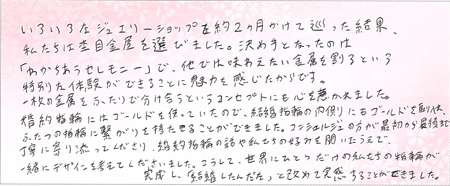 いろいろなジュエリーショップを約2ヶ月かけて巡った結果、
私たちは杢目金屋を選びました。決め手となったのは
「わかちあうセレモニー」で、他では味わえない金属を割るという
特別な体験ができることに魅力を感じたからです。
一枚の金属をふたりで分け合うというコンセプトにも心を惹かれました。
婚約指輪にはゴールドを使っていたので、結婚指輪の内側にもゴールドを
ふたつの指輪に繋がりを持たせることができました。コンシェルジュの方が最初から最後まで
丁寧に寄り添ってくださり、婚約指輪の話や私たちの好みを聞いたうえで、
一緒にデザインを考えてくださいました。こうして、世界にひとつだけの私たちの指輪が
完成し、「結婚したんだな」と改めて実感することができました。